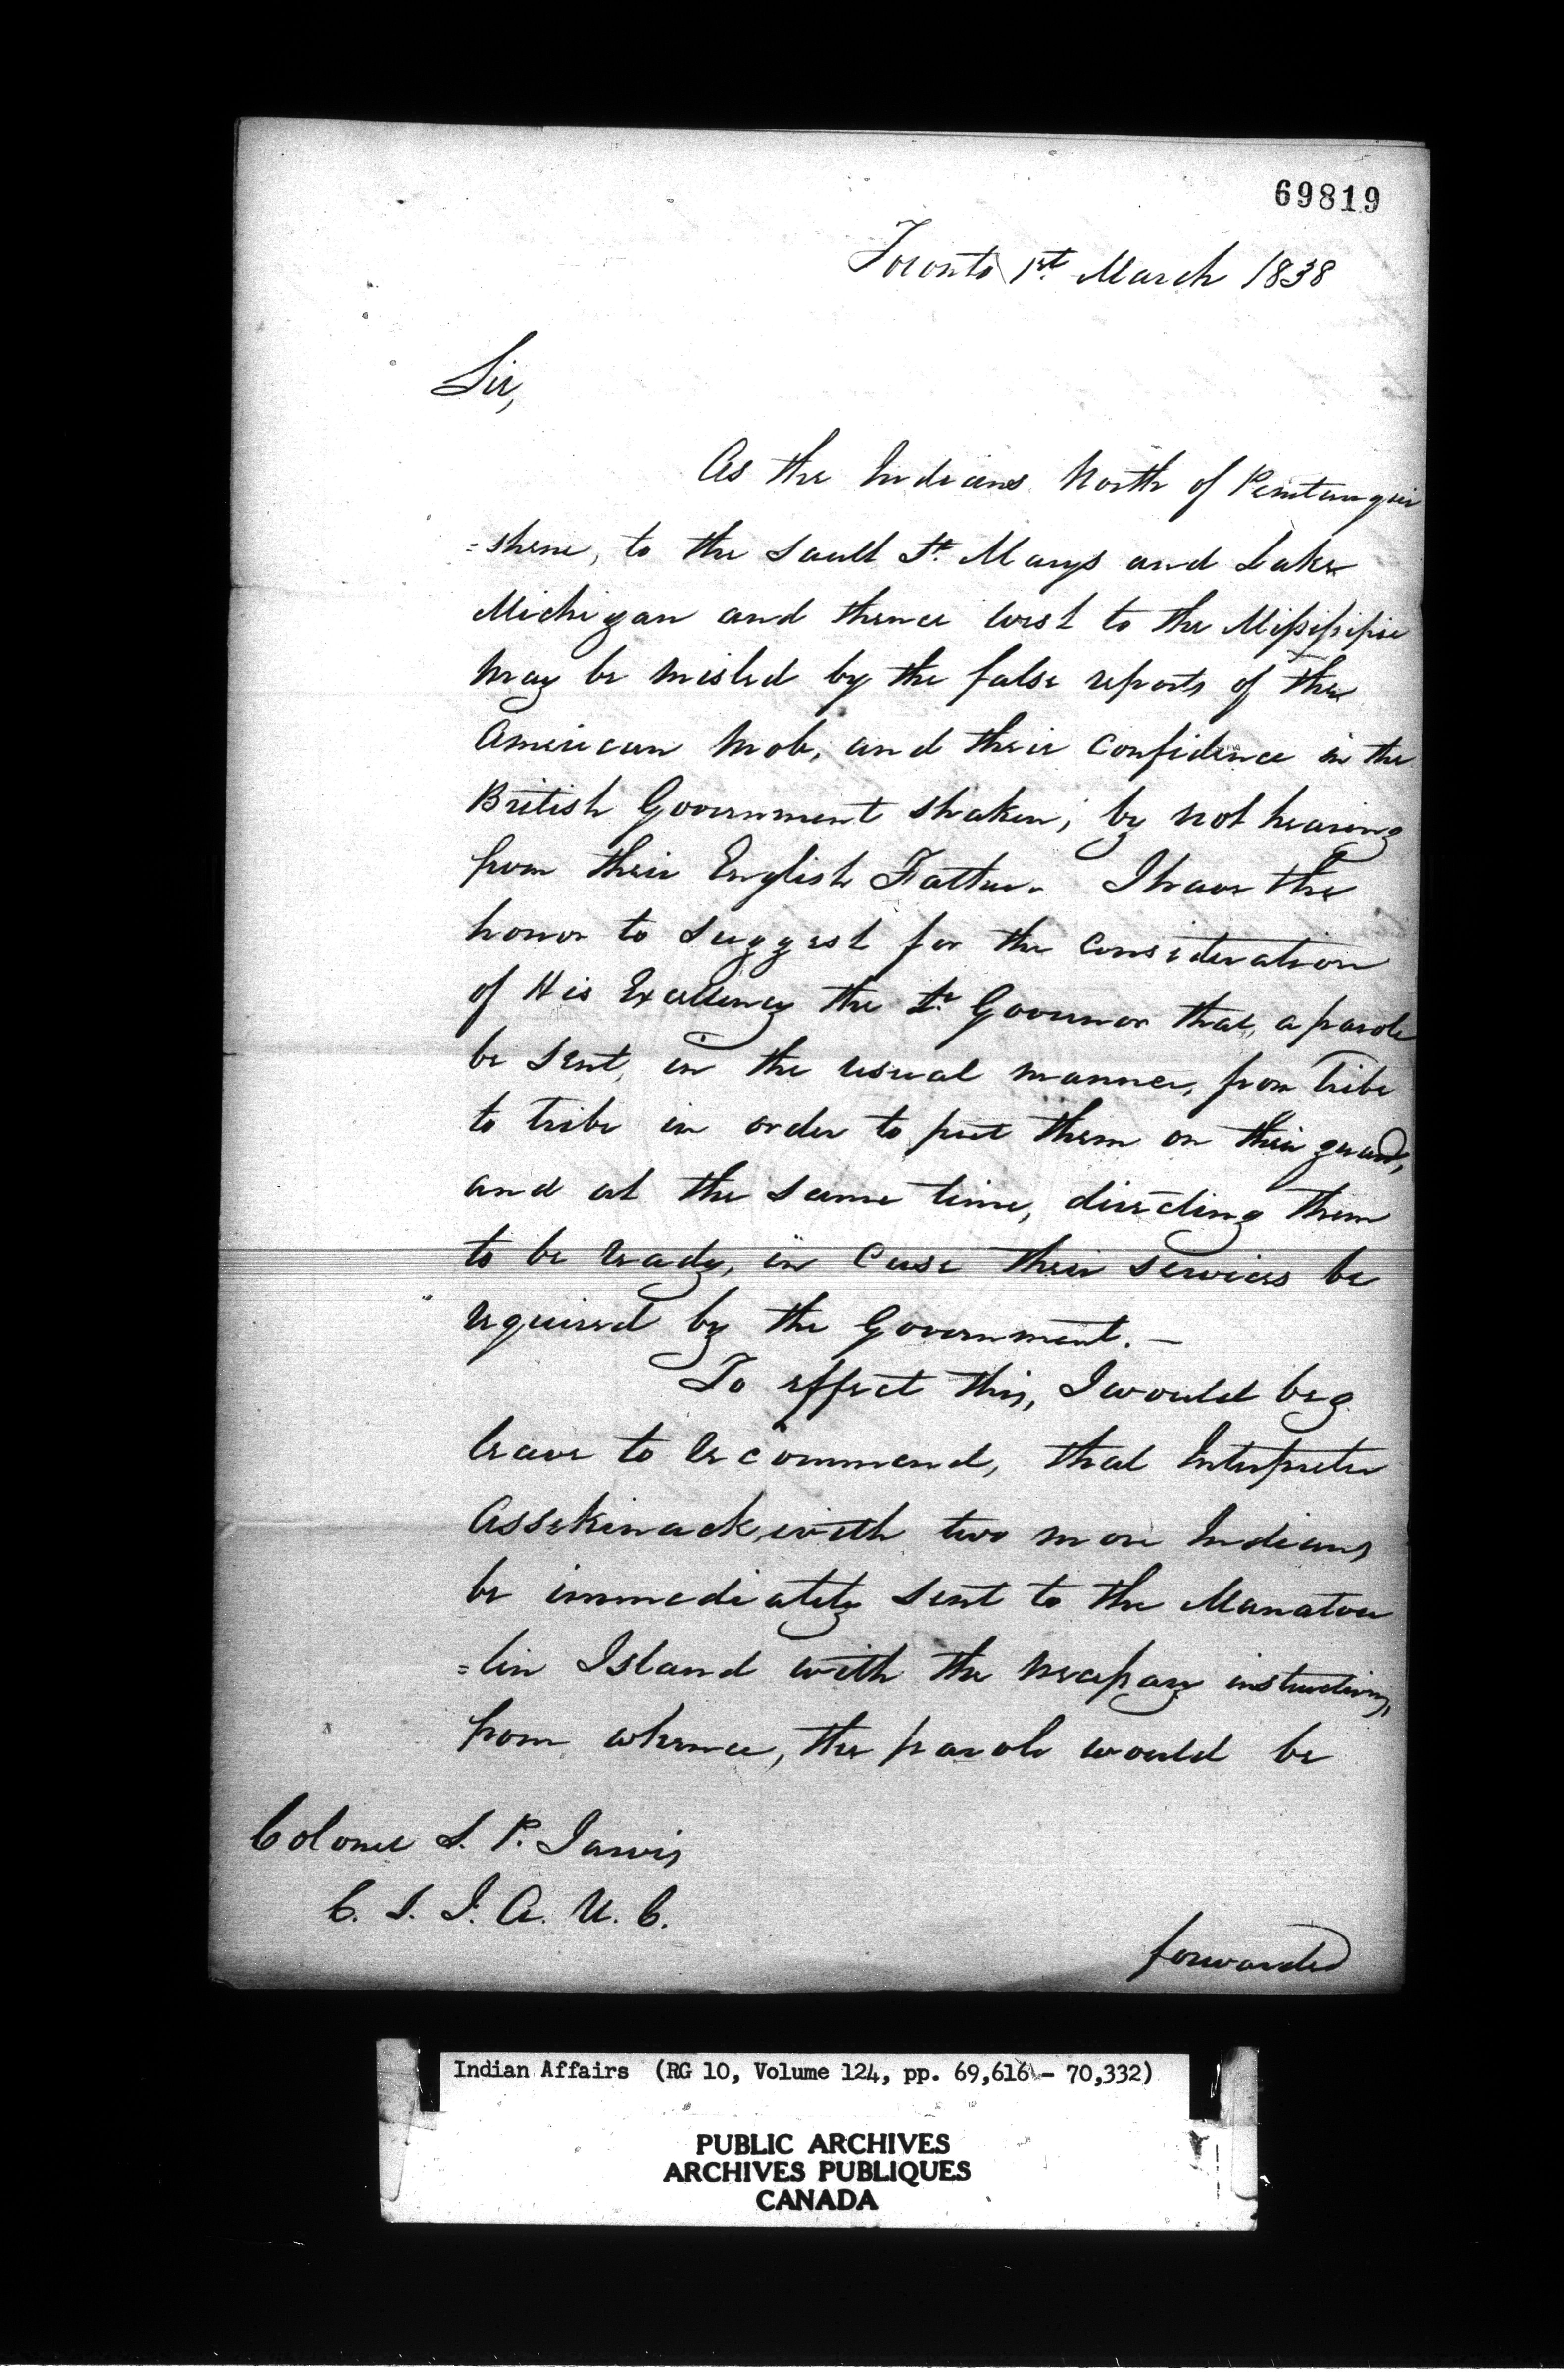 69819
Toronto 1st March 1838
Sir,
As the Indians North of Penitangui
=shene, to the Sault St. Marys and Lake
Michigan and thence west to the Missisippie
may be misled by the false reports of the
American Mob, and their confidence in the
British Government shaken; by not hearing
from their English Father. I have the
honor to suggest for the consideration
of His Excellency the Lt. Governor that, a parole
be sent, in the usual manner, from Tribe
to tribe in order to put them on their guard,
and at the same time, directing them
to be ready, in case their services be
required by the Government. —
To effect this, I would beg
leave to recommend, that Interpreter
Assekinack, with two more Indians
be immediately sent to the Manatou
=lin Island with the necessary instructions,
from whence, the parole would be
Colonel S. P. Jarvis
C. S. I. A. U. C.
forwarded
Indian Affairs (RG 10, Volume 124, pp. 69,616 - 70,332)
PUBLIC ARCHIVES
ARCHIVES PUBLIQUES
CANADA